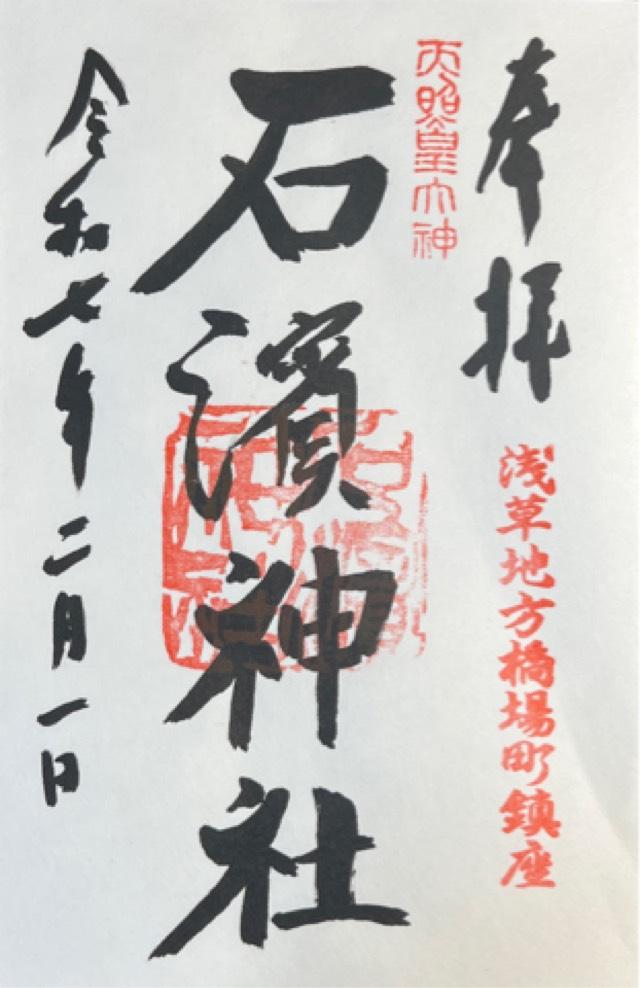 奉拝
浅草地方橋場町鎮座
天照皇大神
石濱神社
令和七年二月一日